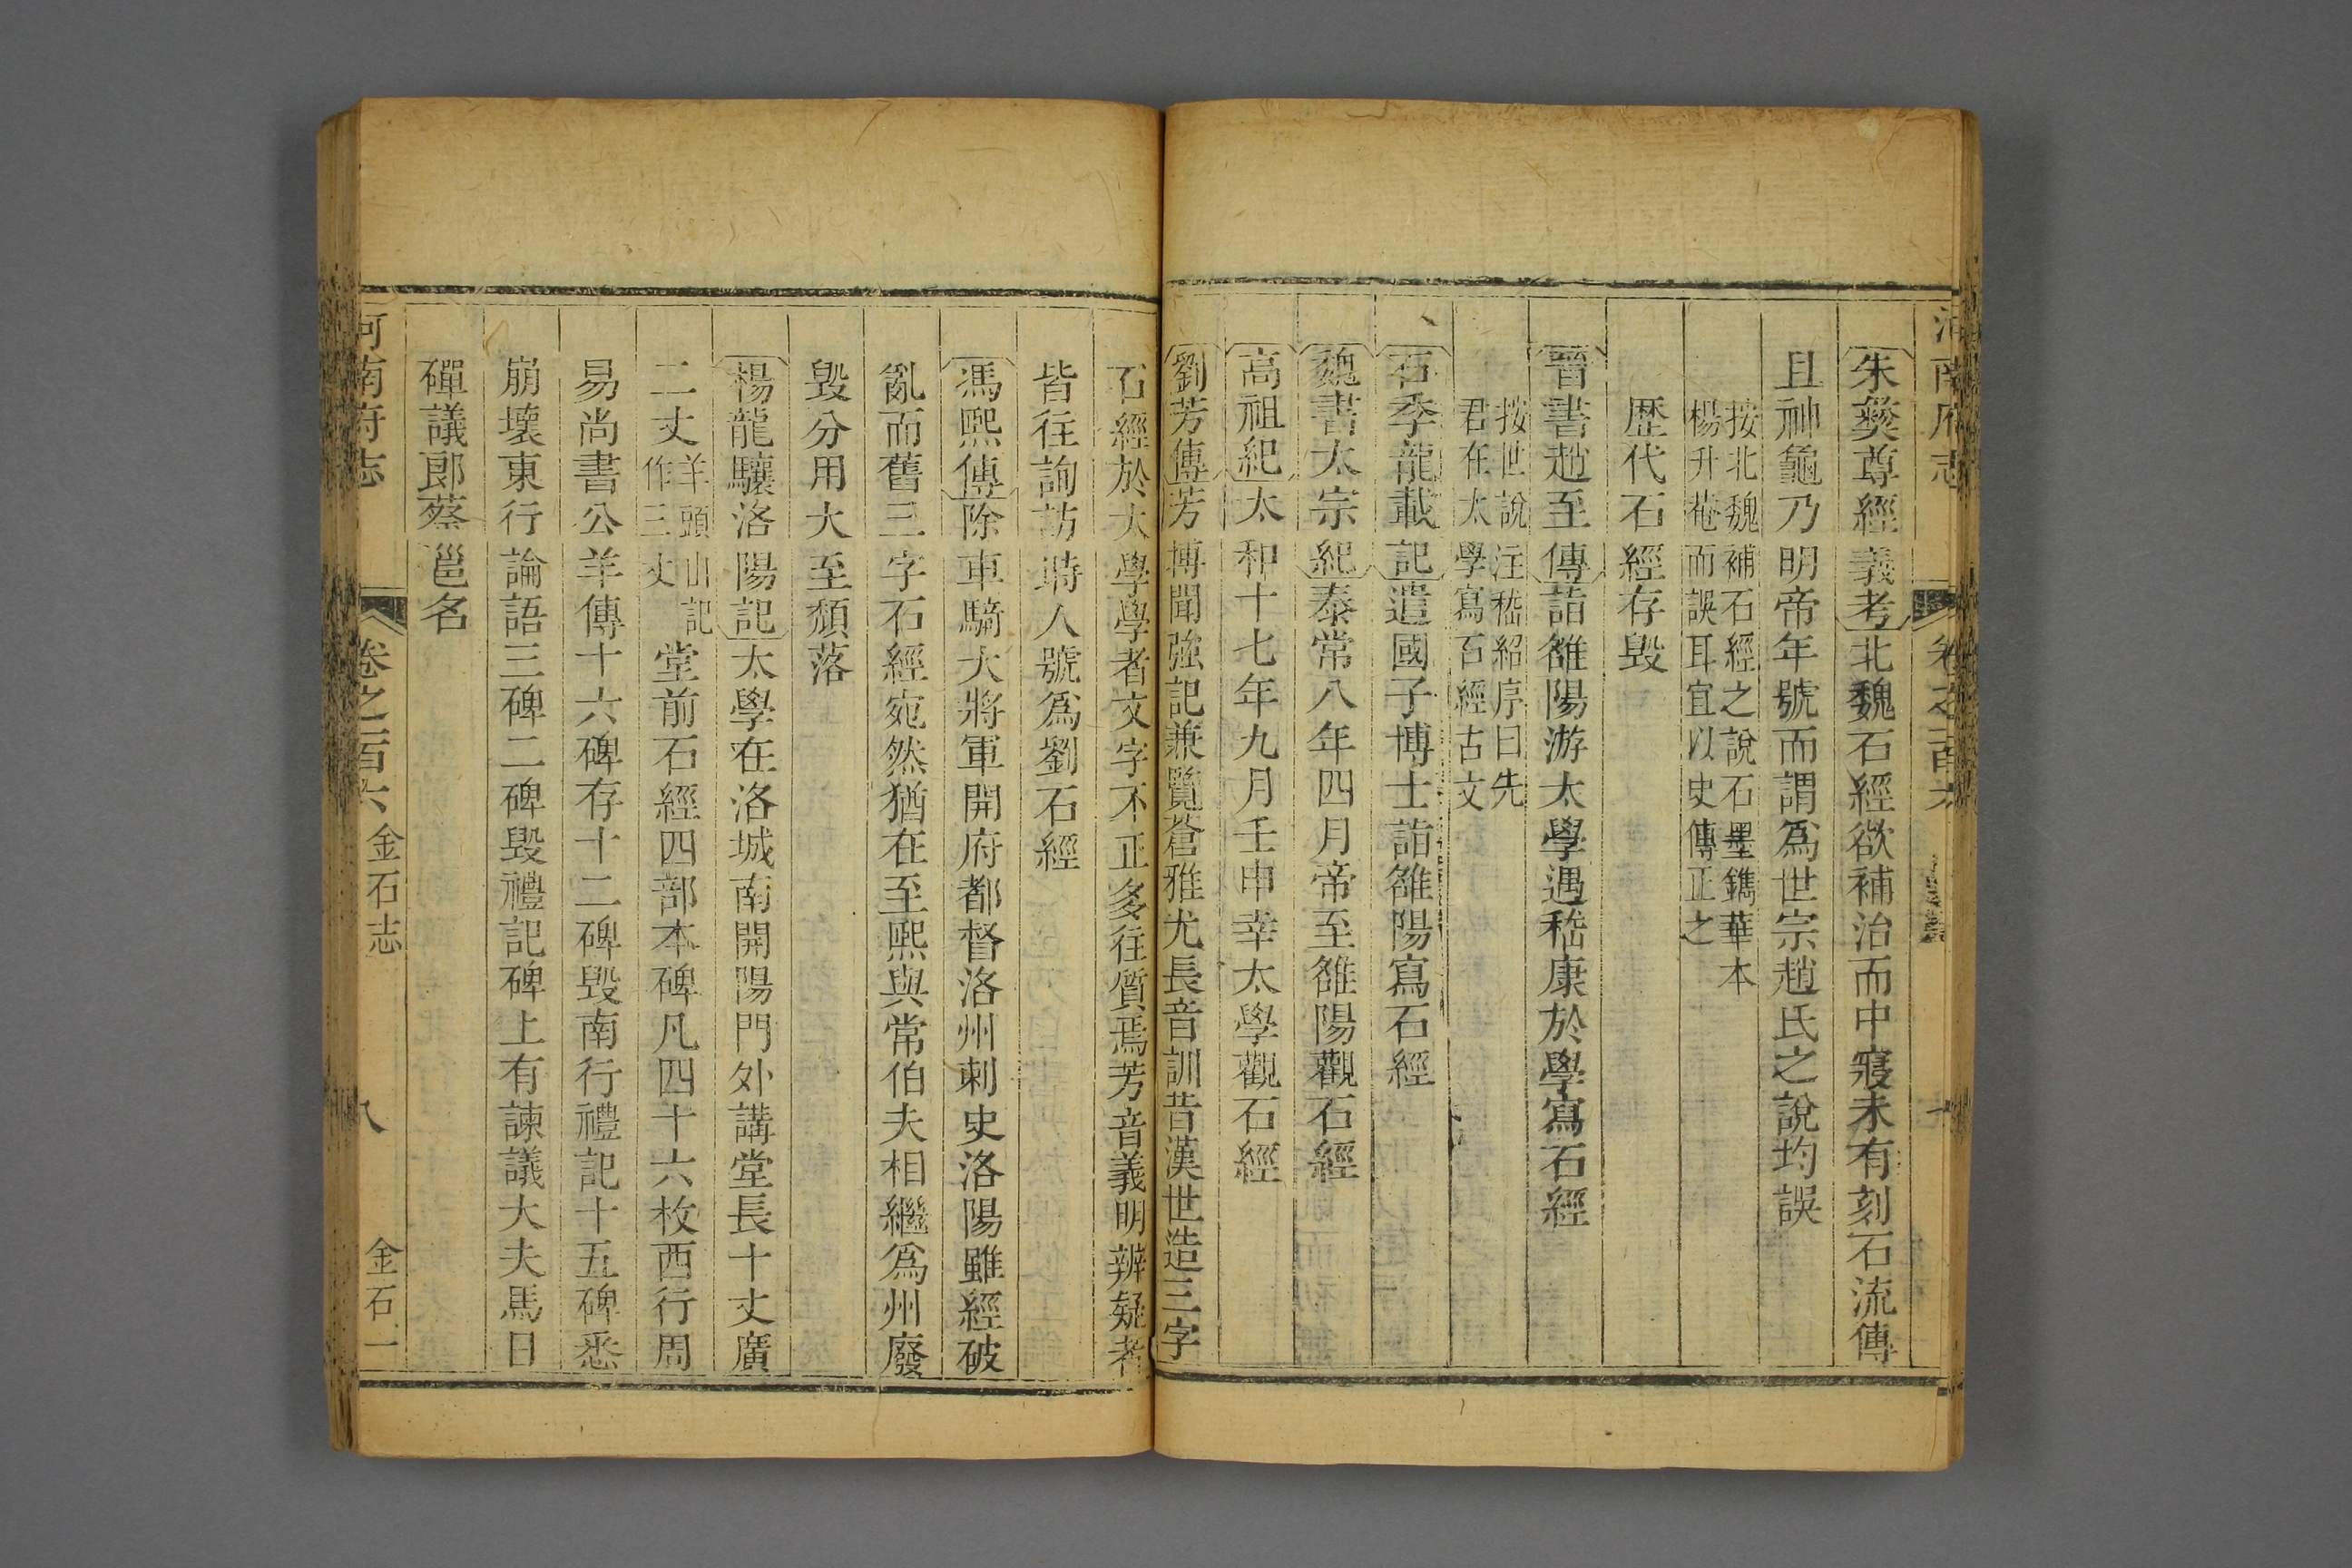 河南府志
卷之一百六
朱彝尊經義考北魏石經欲補治而中寢未有刻石流傳
且神龜乃明帝年號而謂爲世宗趙氏之說均誤
按北魏補石經之說石墨鐫華本
楊升菴而誤耳宜以史傳正之
歷代石經存毀
晉書趙至傳詣雒陽游太學遇嵇康於學寫石經
按世說注嵇紹序曰先
君在太學寫石經古文
石季龍載記遣國子博士詣雒陽寫石經
魏書太宗紀泰常八年四月帝至雒陽觀石經
高祖紀太和十七年九月壬申幸太學觀石經
劉芳傳芳博聞強記兼覽蒼雅尤長音訓昔漢世造三字
石經於太學學者文字不正多往質焉芳音義明辨疑者
皆往詢訪時人號爲劉石經
馮熙傳除車騎大將軍開府都督洛州刺史洛陽雖經破
亂而舊三字石經宛然猶在至熙與常伯夫相繼爲州廢
毀分用大至頹落
楊龍驤洛陽記太學在洛城南開陽門外講堂長十丈廣
二丈
羊頭山記
作三丈
堂前石經四部本碑凡四十六枚西行周
易尚書公羊傳十六碑存十二碑毀南行禮記十五碑悉
崩壞東行論語三碑二碑毀禮記碑上有諫議大夫馬日
磾議郎蔡邕名
河南府志
卷之一百六
金石志
八
金石一